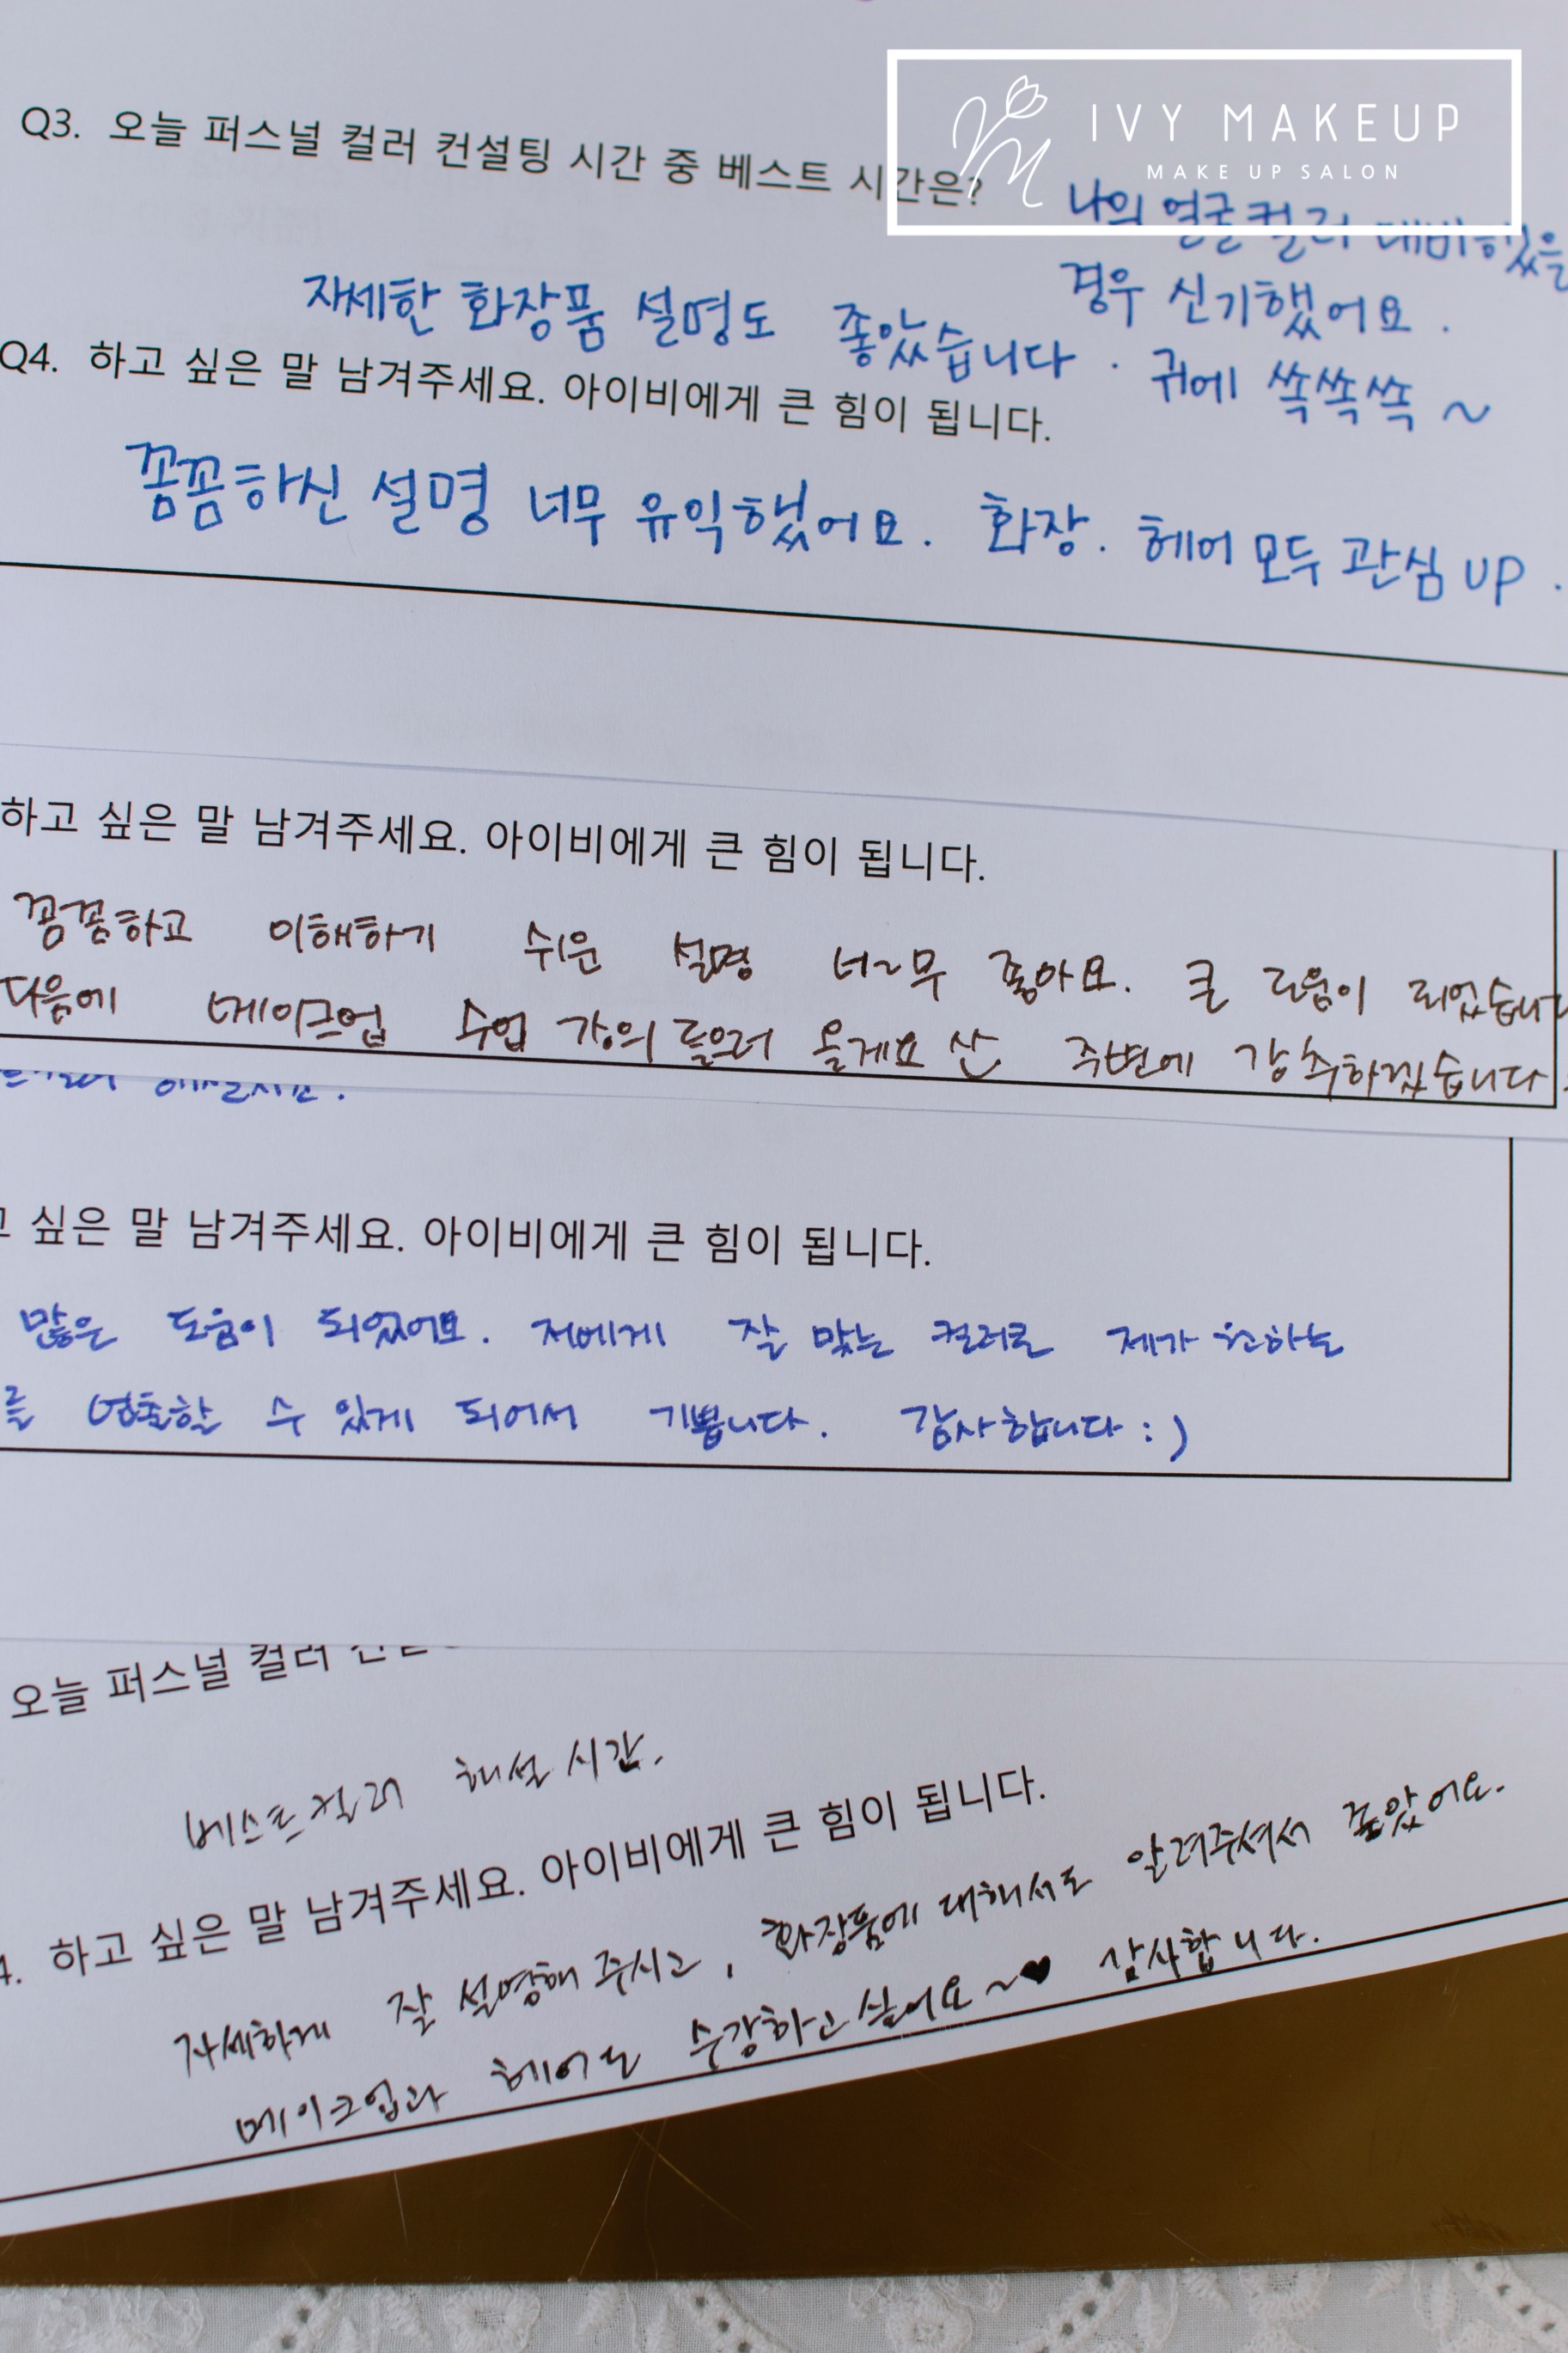 IVY MAKEUP
MAKE UP SALON
Q3. 오늘 퍼스널 컬러 컨설팅 시간 중 베스트 시간은?
나의 얼굴컬러 대비했을
경우 신기했어요.
자세한 화장품 설명도 좋았습니다. 귀에 쏙쏙쏙~
Q4. 하고 싶은 말 남겨주세요. 아이비에게 큰 힘이 됩니다.
꼼꼼하신 설명 너무 유익했어요. 화장. 헤어 모두 관심 UP.
하고 싶은 말 남겨주세요. 아이비에게 큰 힘이 됩니다.
꼼꼼하고 이해하기 쉬운 설명 너~무 좋아요. 큰 도움이 되었습니다
다음에 메이크업 수업 강의 들으러 올게요 주변에 강추하겠습니다.
고 싶은 말 남겨주세요. 아이비에게 큰 힘이 됩니다.
많은 도움이 되었어요. 저에게 잘 맞는 컬러로 제가 원하는
를 연출할 수 있게 되어서 기쁩니다. 감사합니다 :)
오늘 퍼스널 컬러
베스트컬러 해설 시간.
4. 하고 싶은 말 남겨주세요. 아이비에게 큰 힘이 됩니다.
자세하게 잘 설명해 주시고, 화장품에 대해서도 알려주셔서 좋았어요.
메이크업과 헤어도 수강하고 싶어요~♥ 감사합니다.